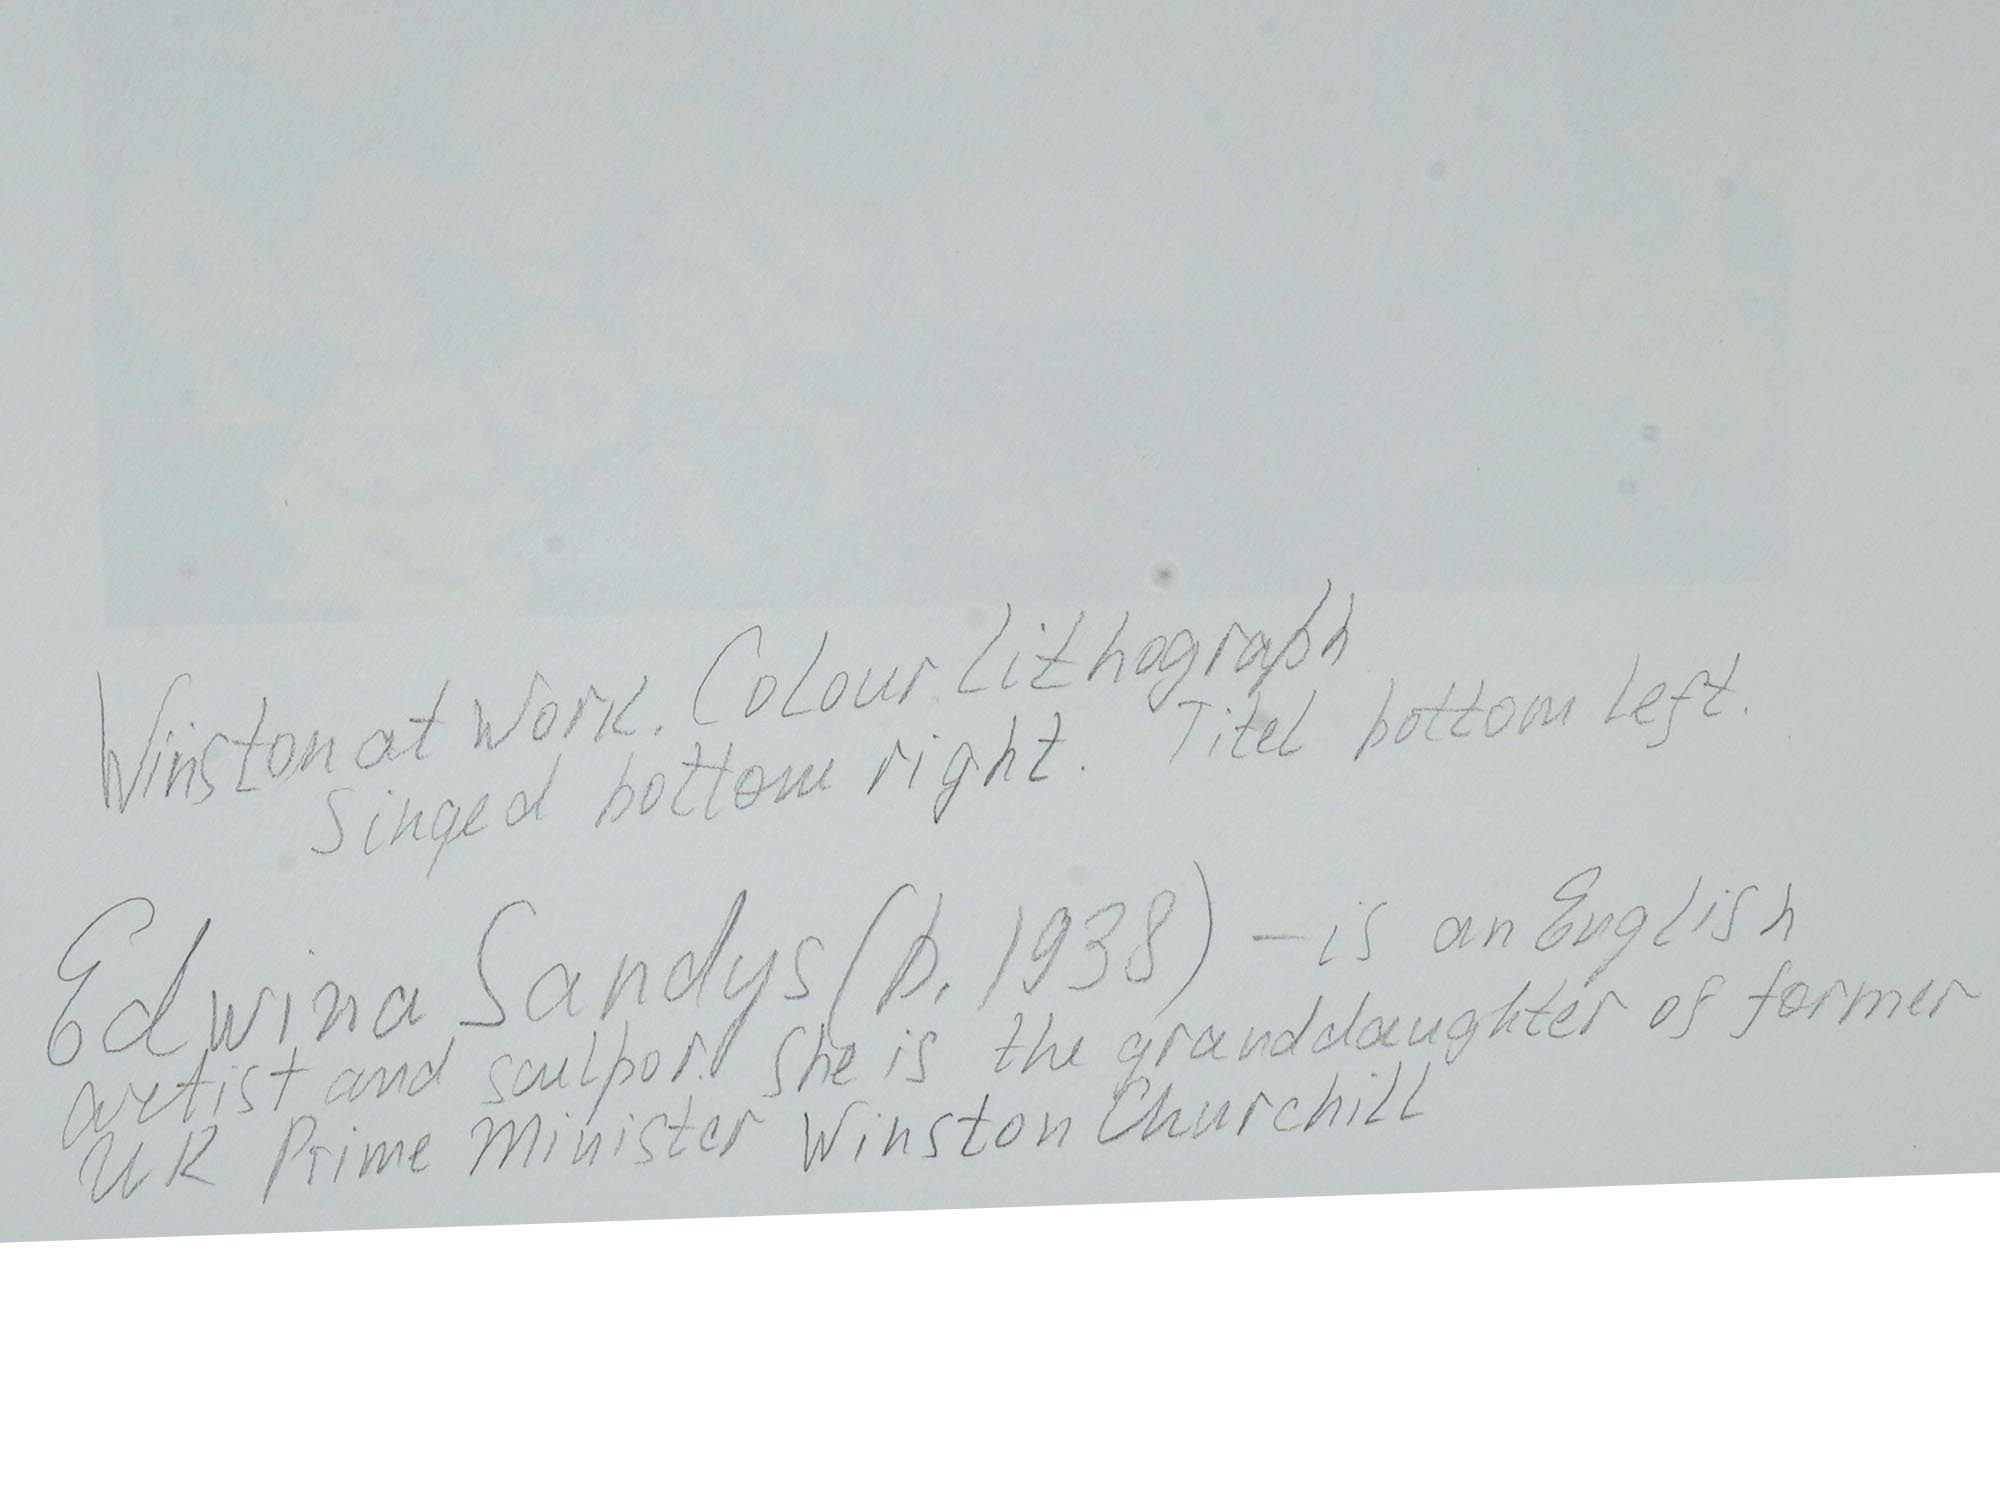 Winston at Work. Colour Lithograph
Singed bottom right. Titel bottom Left.
Edwina Sandys (b. 1938) – is an English
artist and sculpor. She is the granddaughter of former
UK Prime Minister Winston Churchill